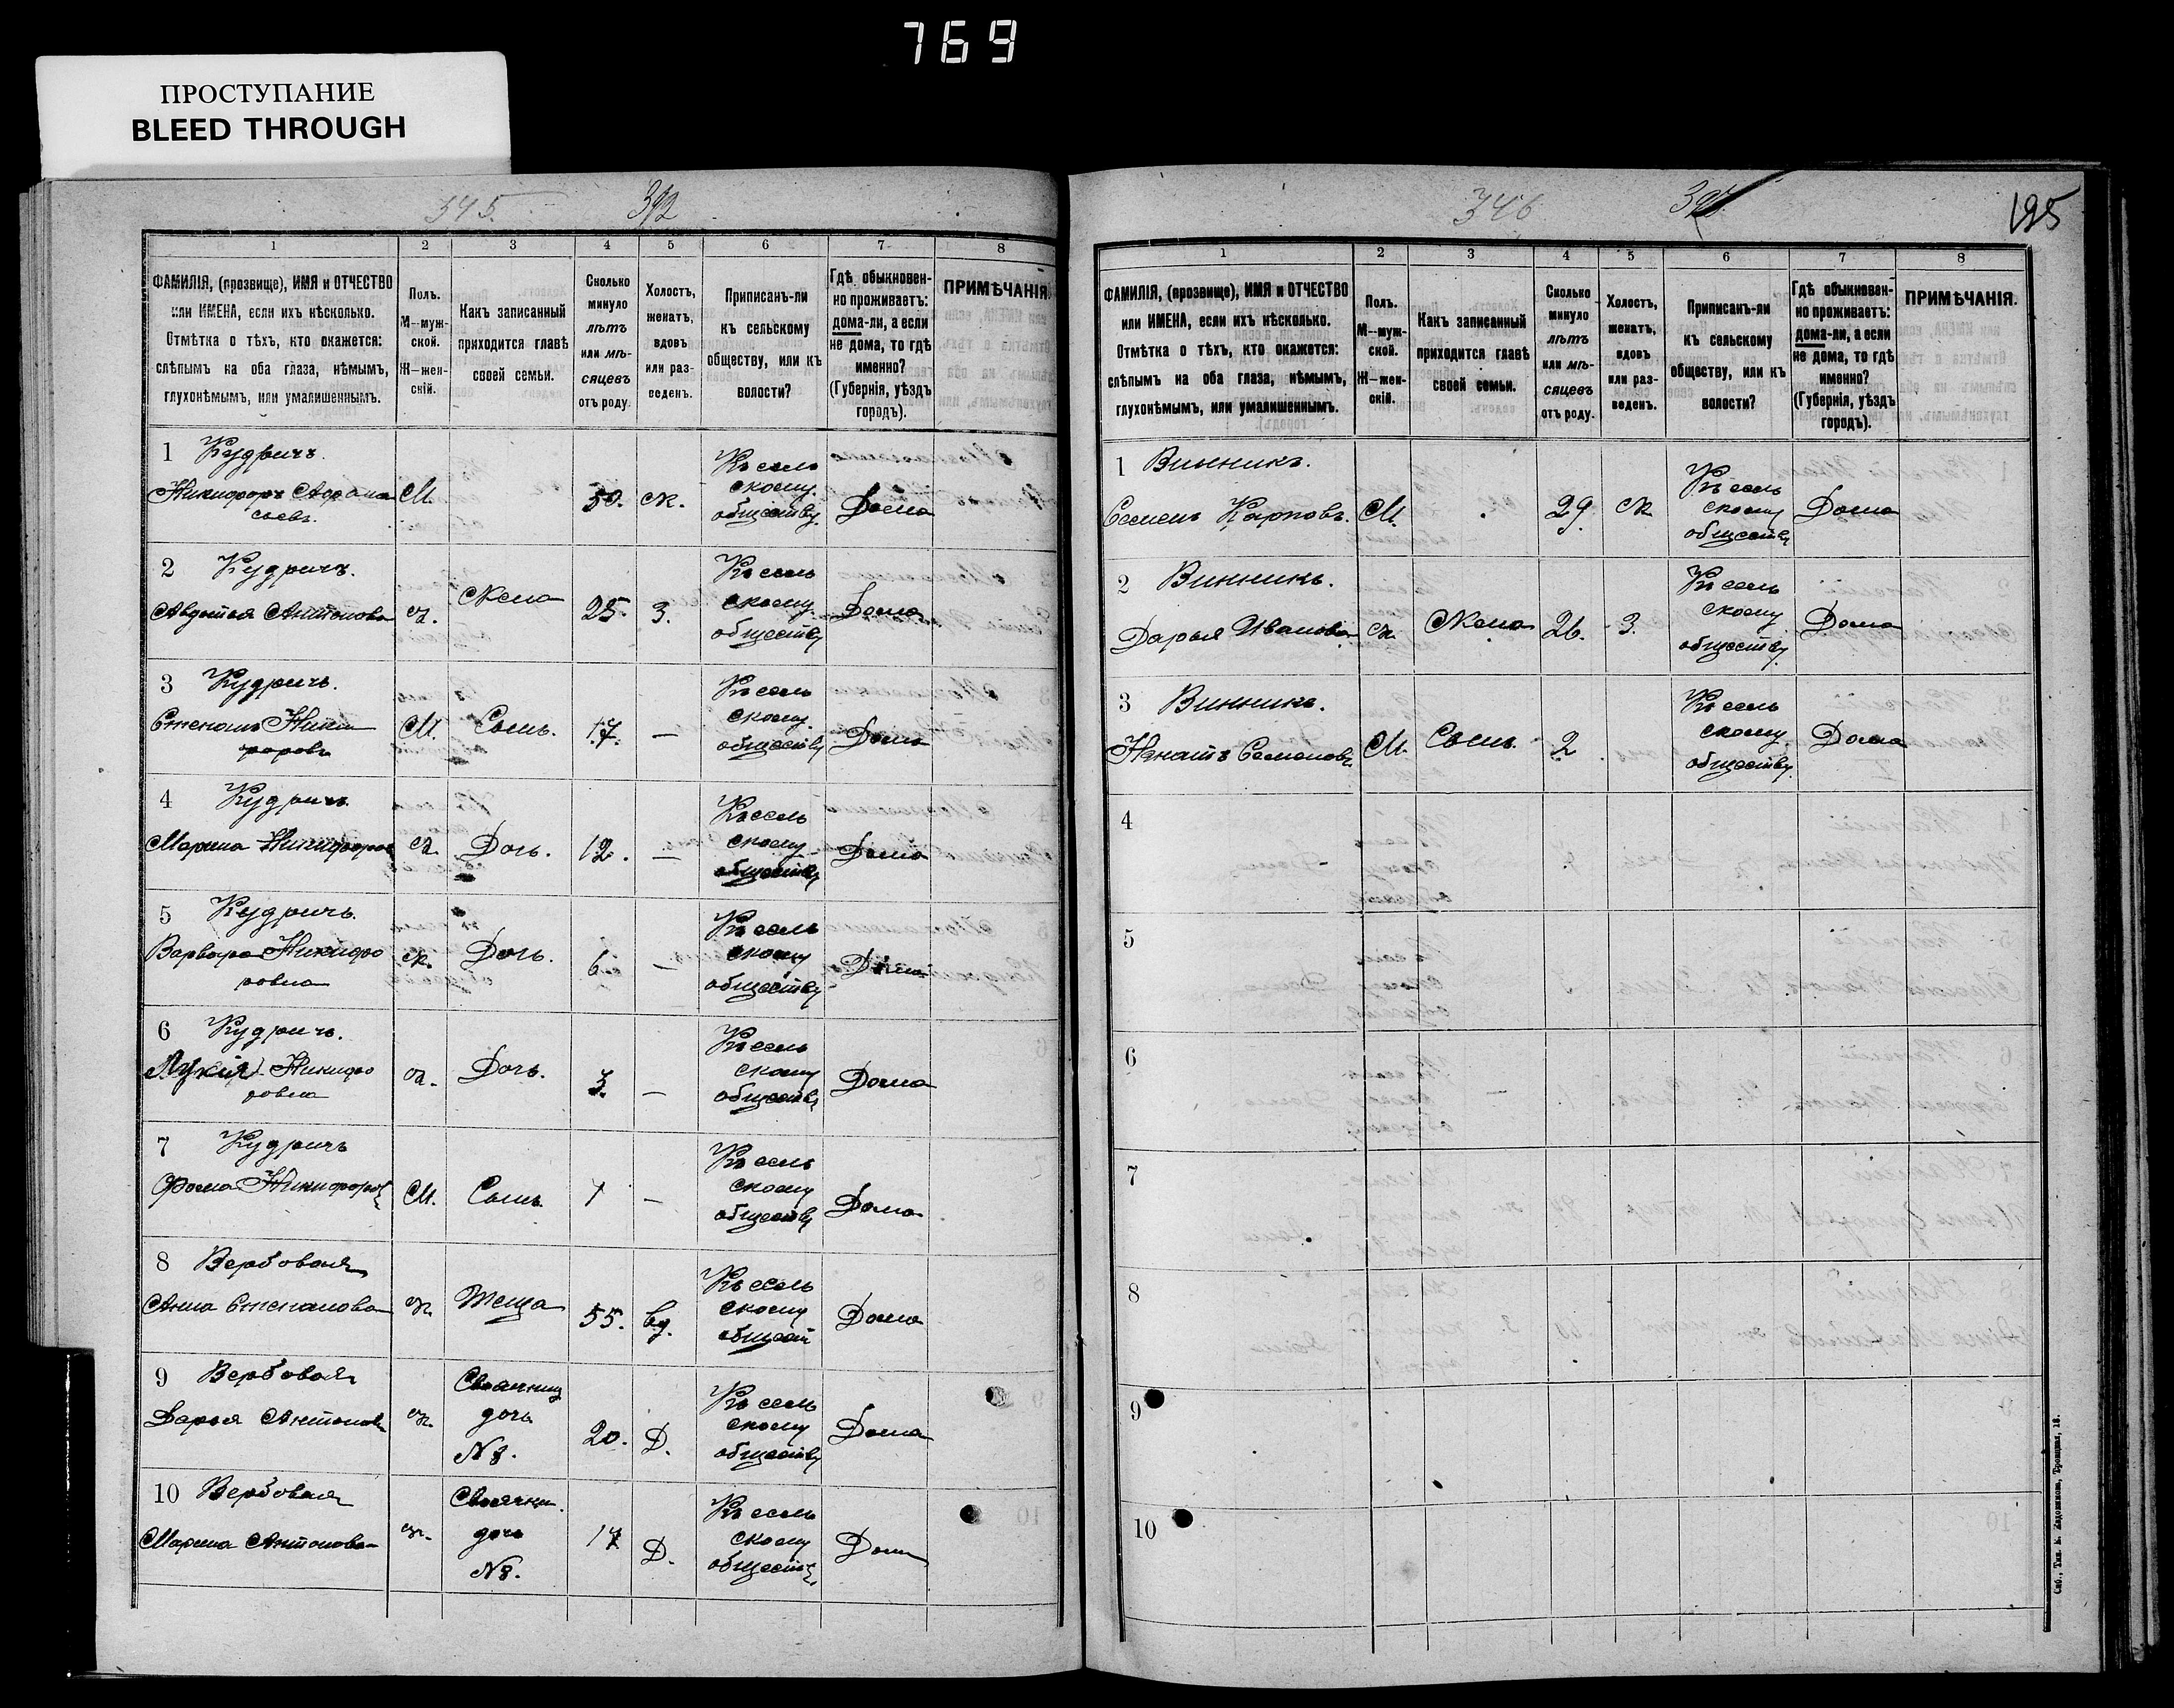 769
ПРОСТУПАНИЕ
BLEED THROUGH
345.
392
1 2 3 4 5 6 7 8
ФАМИЛІЯ, (прозвище), ИМЯ и ОТЧЕСТВО или ИМЕНА, если ихъ нѣсколько. Отмѣтка о тѣхъ, кто окажется: слѣпымъ на оба глаза, нѣмымъ, глухонѣмымъ, или умалишеннымъ.
Полъ. М—мужской. Ж—женскій.
Какъ записанный приходится главѣ своей семьи.
Сколько минуло лѣтъ или мѣсяцевъ отъ роду.
Холостъ, женатъ, вдовъ или разведенъ.
Приписанъ-ли къ сельскому обществу, или къ волости?
Гдѣ обыкновенно проживаетъ: дома-ли, а если не дома, то гдѣ именно? (Губернія, уѣздъ городъ).
ПРИМѢЧАНІЯ.
1 Кудричъ.
Никифоръ Афанасьевъ. М. 50. Ж. Къ сельскому обществу. Дома
2 Кудричъ.
Авдотья Антонова ж. Жена 25. З. Къ сельскому обществу Дома
3 Кудричъ.
Степанъ Никифоровъ М. Сынъ. 17. — Къ сельскому обществу Дома
4 Кудричъ
Марина Никифоров ж. Дочь. 12. — Къ сельскому обществу Дома
5 Кудричъ.
Варвара Никифоровна ж. Дочь. 6 — Къ сельскому обществу Дома
6 Кудричъ.
Лукія Никифоровна ж. Дочь. 3. — Къ сельскому обществу Дома
7 Кудричъ
Фома Никифоров М. Сынъ 1 — Къ сельскому обществу Дома
8 Вербовая
Анна Степанова ж. Теща 55. вд. Къ сельскому общест Дома
9 Вербовая
Дарья Антонова ж. дочь №8. 20. Д. Къ сельскому обществу Дома
10 Вербовая
Марина Антонова ж. дочь №8. 17 Д. Къ сельскому обществу Дома
346
195
1 2 3 4 5 6 7 8
ФАМИЛІЯ, (прозвище), ИМЯ и ОТЧЕСТВО или ИМЕНА, если ихъ нѣсколько. Отмѣтка о тѣхъ, кто окажется: слѣпымъ на оба глаза, нѣмымъ, глухонѣмымъ, или умалишеннымъ.
Полъ. М—мужской. Ж—женскій.
Какъ записанный приходится главѣ своей семьи.
Сколько минуло лѣтъ или мѣсяцевъ отъ роду.
Холостъ, женатъ, вдовъ или разведенъ.
Приписанъ-ли къ сельскому обществу, или къ волости?
Гдѣ обыкновенно проживаетъ: дома-ли, а если не дома, то гдѣ именно? (Губернія, уѣздъ городъ).
ПРИМѢЧАНІЯ.
1 Винникъ.
Семенъ Карповъ. М. 29. Ж Къ сельскому обществу Дома
2 Винникъ.
Дарья Иванова ж. Жена 26. З. Къ сельскому обществу Дома
3 Винникъ.
Игнатъ Семеновъ. М. Сынъ. 2 Къ сельскому обществу. Дома
4
5
6
7
8
9
10